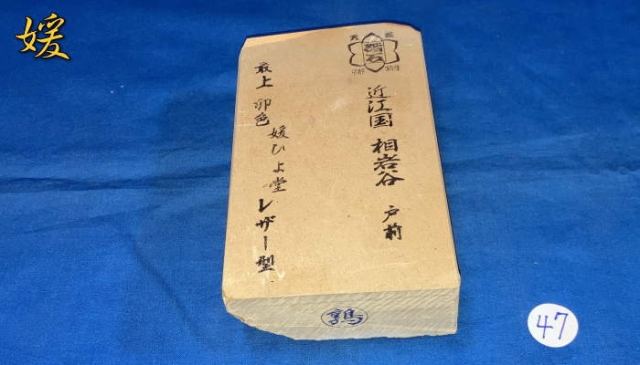 媛
天 然
砥石
近江国 相岩谷 戸前
最上 卵色 媛ひよ堂 レザー型
鶉
47